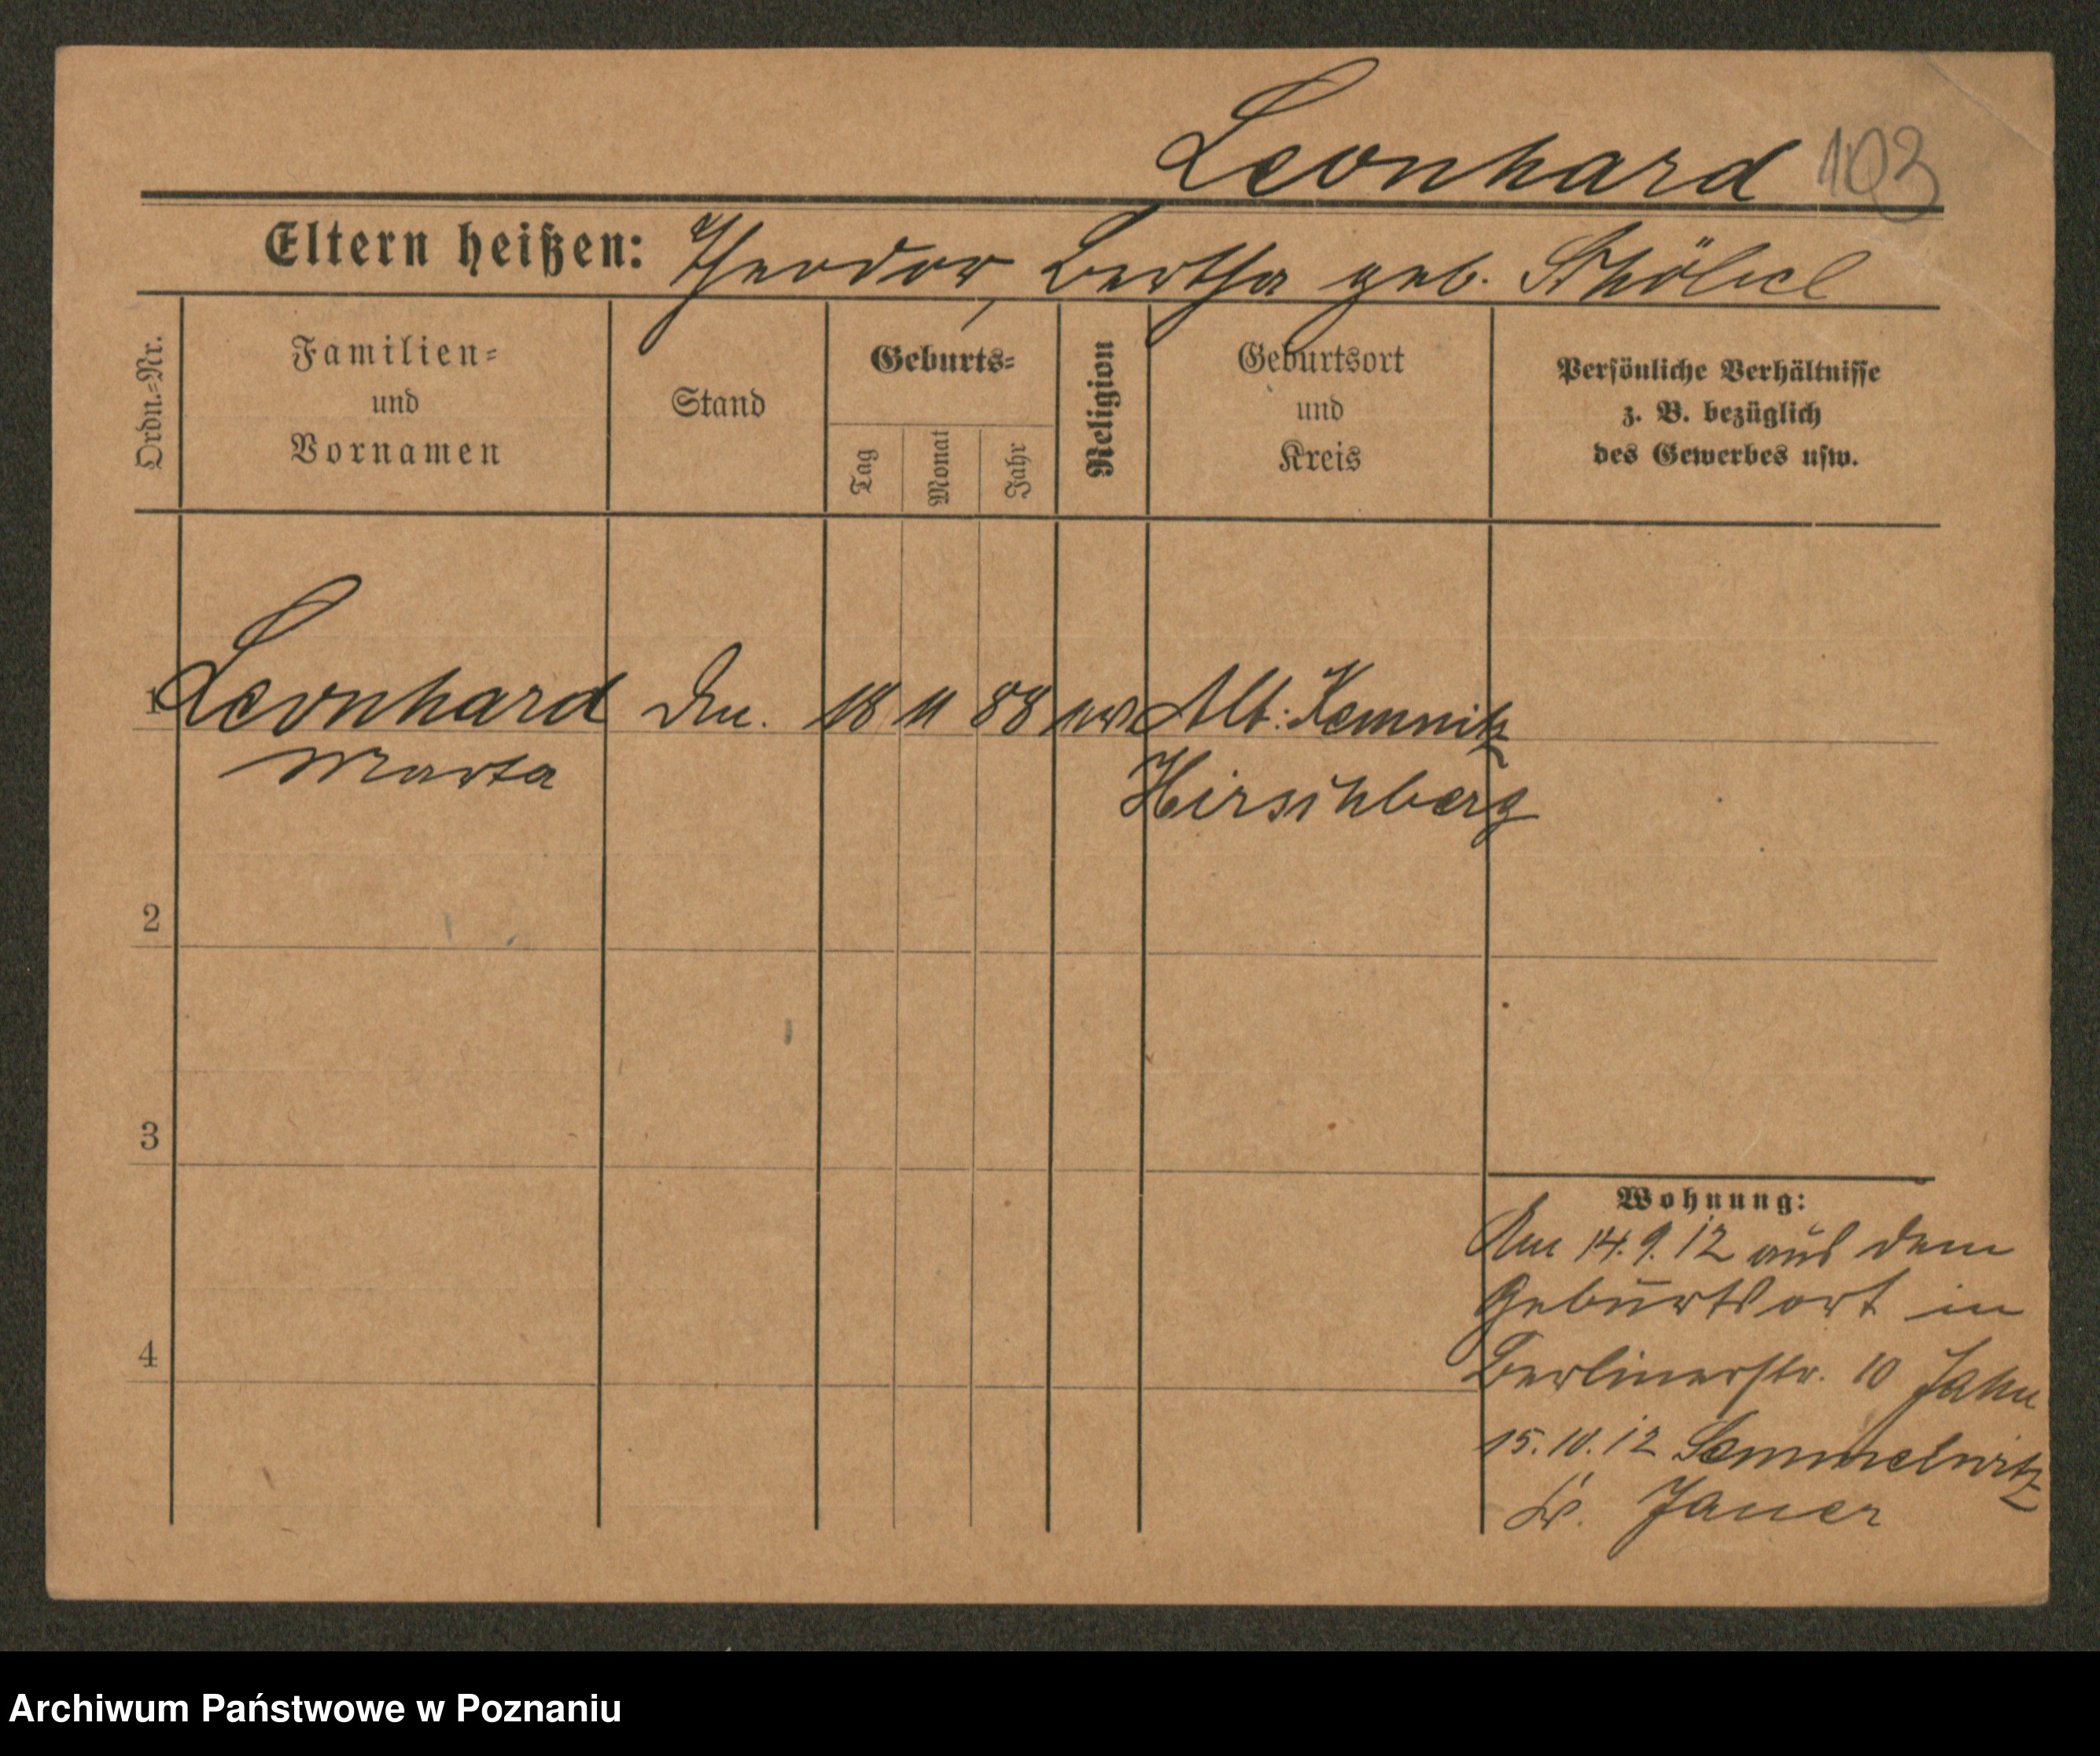 Leonhard 103
Eltern heißen: Theodor, Bertha geb.
Ordn.=Nr.
Familien=
und
Vornamen
Stand
Geburts=
Tag
Monat
Jahr
Religion
Geburtsort
und
Kreis
Persönliche Verhältnisse
z. B. bezüglich
des Gewerbes usw.
1 Leonhard 18 11 88 Alt: Kemnitz
Marta Hirschberg
2
3
4
Wohnung:
Am 14.9.12 aus dem
Geburtsort in
Berlinerstr. 10
15.10.12 Semmelwitz
Kr. Jauer
Archiwum Państwowe w Poznaniu